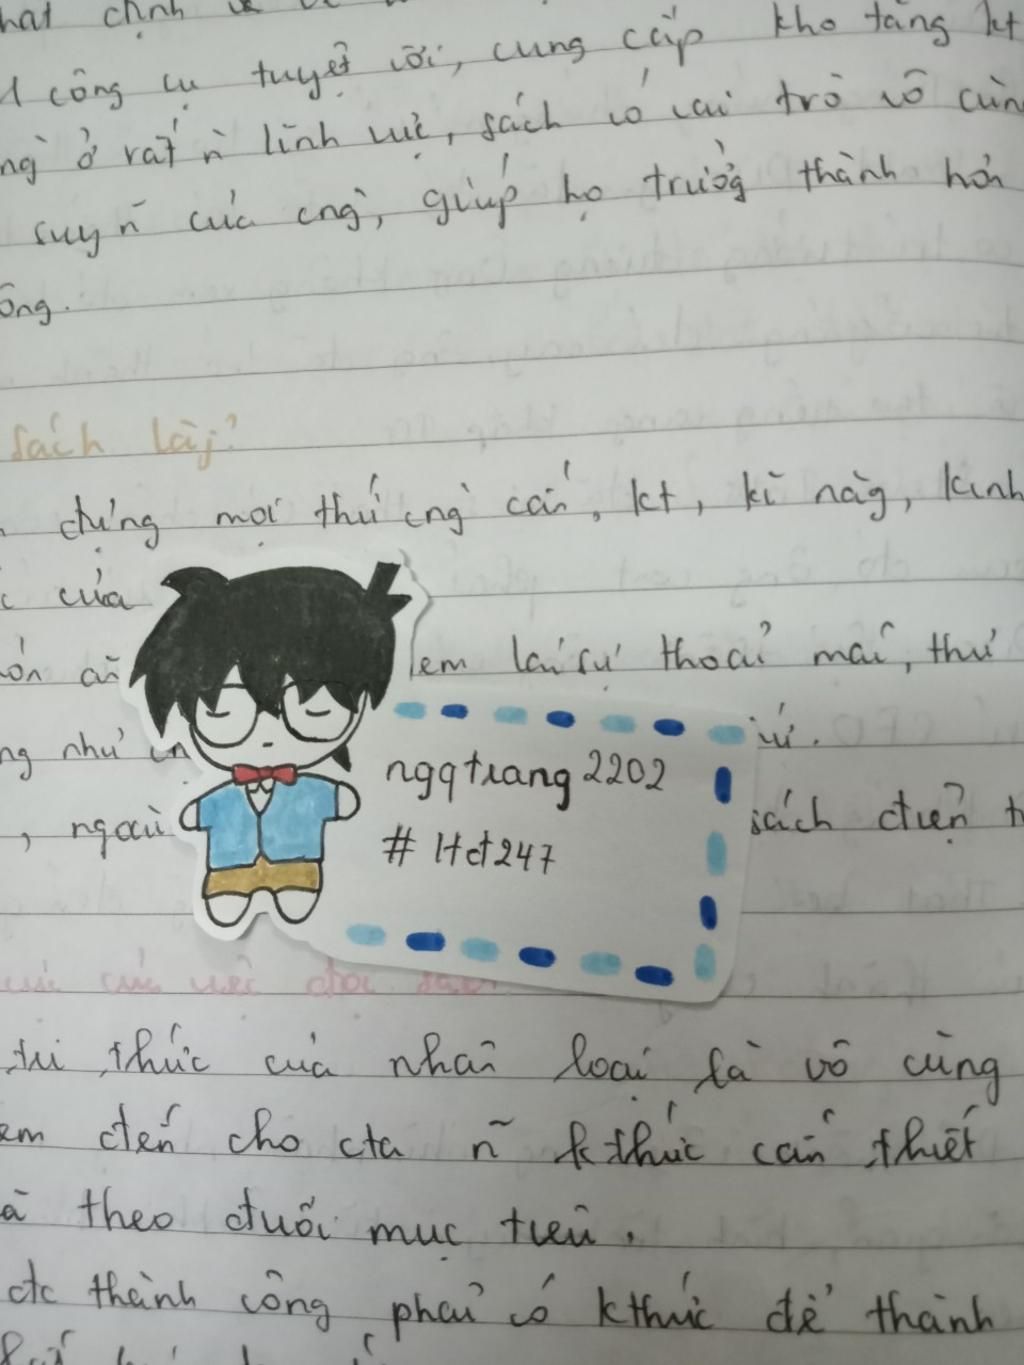 công cụ tuyệt vời, cung cấp kho tàng kt
ở rất ñ lĩnh vực, sách có vai trò vô cùng
suy ñ của cng`, giúp họ trưởng thành hơn
ông.
sách là j?
đựng mọi thứ cng` cần, kt, kĩ năng, kinh
của
ăn đem lại sự thoải mái, thư
như
, ngoài sách điện t
ngqtrang2202
# Hct247
của việc đọc sách
tri thức của nhân loại là vô cùng
em đến cho cta ñ kthức cần thiết
à theo đuổi mục tiêu.
đc thành công phải có kthức để thành